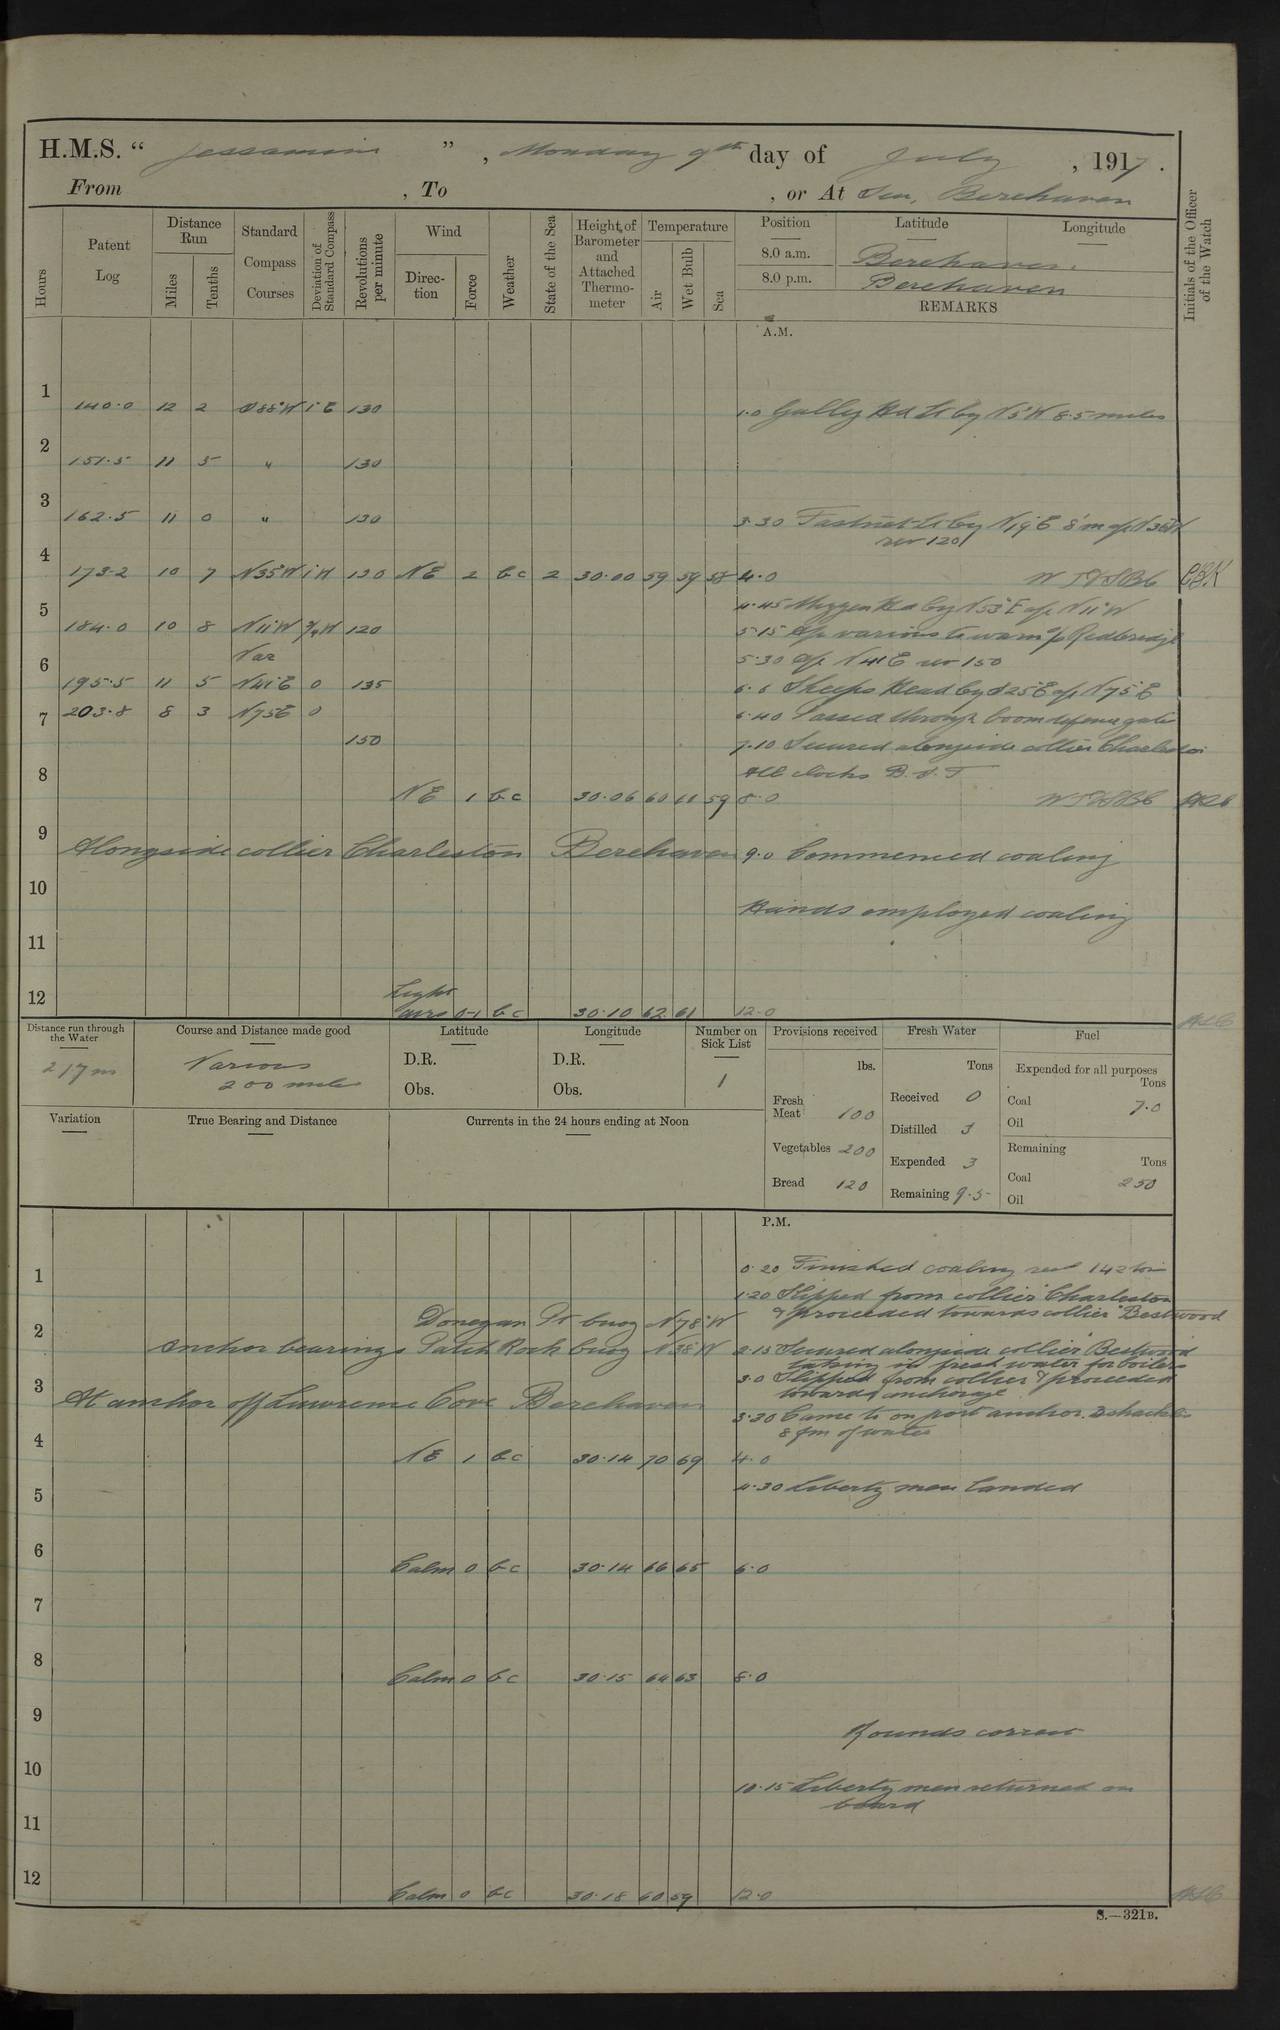 H.M.S. “ Jessamine ” , Monday 9th day of July , 1917 .
From , To , or At Sea, Berehaven
Hours
Patent Log
Distance Run
Miles
Tenths
Standard Compass Courses
Deviation of Standard Compass
Revolutions per minute
Wind
Direction
Force
Weather
State of the Sea
Height of Barometer and Attached Thermometer
Temperature
Air
Wet Bulb
Sea
Position Latitude Longitude
8.0 a.m. Berehaven
8.0 p.m. Berehaven
REMARKS
Initials of the Officer of the Watch
A.M.
1 140.0 12 2 S88°W 1°E 130 1.0 Gally Hd Lt by N5°W 8.5 miles
2 151.5 11 5 " 130
3 162.5 11 0 " 130 3.30 Fastnet Lt by N19°E 8'm a/c N35°W
rev 120
4 173.2 10 7 N35°W 1°W 130 NE 2 bc 2 30.00 59 59 58 4.0
4.45 Mizzen Hd by N53°E a/c N11°W
5 184.0 10 8 N11°W 120 5.15 a/c various to
Var
6 5.30 a/c N41°E rev 150
195.5 11 5 N41°E 0 135 6.6 Sheeps Head by S25°E a/c N75°E
7 203.8 8 3 N75E 0 6.40 Passed through boom defence gate
150 7.10 Secured alongside collier Charleston
All clocks B.S.T
8 NE 1 bc 30.06 60 59 8.0
9 Alongside collier Charleston Berehaven 9.0 Commenced coaling
10
Hands employed coaling
11
12 Light airs 0-1 bc 30.10 62 61 12.0
Distance run through the Water
217m
Course and Distance made good
Various
200 miles
Latitude
D.R.
Obs.
Longitude
D.R.
Obs.
Number on Sick List
1
Provisions received
lbs.
Fresh Meat 100
Vegetables 200
Bread 120
Fresh Water
Tons
Received 0
Distilled 3
Expended 3
Remaining 9.5
Fuel
Expended for all purposes
Tons
Coal 7.0
Oil
Remaining
Tons
Coal 250
Oil
Variation
True Bearing and Distance
Currents in the 24 hours ending at Noon
P.M.
0.20 Finished coaling recd 142 tons
1
1.20 Slipped from collier Charleston
& proceeded towards collier "Bestwood
2 Donegan Pt buoy N78°W
Anchor bearings Patch Rock buoy N38W 2.15 Secured alongside collier Bestwood
taking in fresh water for boilers
3 3.0 Slipped from collier & proceeded
towards anchorage
At anchor off Lawrence Cove Berehaven
3.30 Came to on port anchor. 3 shackles
8 fm of water
4 NE 1 bc 30.14 70 69 4.0
4.30 Liberty men landed
5
6 Calm 0 bc 30.14 66 65 6.0
7
8 Calm 0 bc 30.15 64 63 8.0
9
Rounds correct
10
10.15 Liberty men returned on
board
11
12 Calm 0 bc 30.18 60 59 12.0
S.—321B.